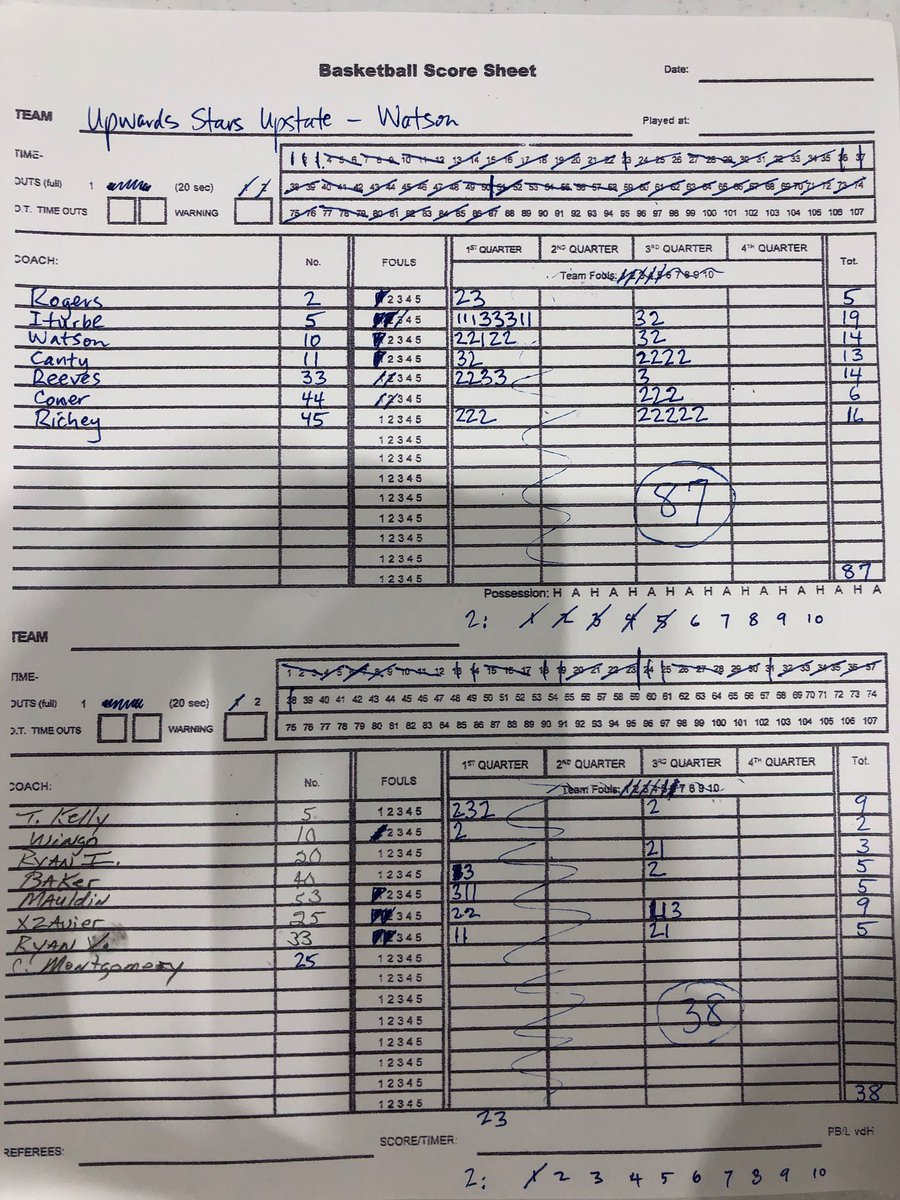 Basketball Score Sheet Date:
TEAM Upwards Stars Upstate - Watson Played at:
TIME- 1 2 3 4 5 6 7 8 9 10 11 12 13 14 15 16 17 18 19 20 21 22 23 24 25 26 27 28 29 30 31 32 33 34 35 36 37
OUTS (full) 1 (20 sec) 1 2 38 39 40 41 42 43 44 45 46 47 48 49 50 51 52 53 54 55 56 57 58 59 60 61 62 63 64 65 66 67 68 69 70 71 72 73 74
O.T. TIME OUTS WARNING 75 76 77 78 79 80 81 82 83 84 85 86 87 88 89 90 91 92 93 94 95 96 97 98 99 100 101 102 103 104 105 106 107
COACH: No. FOULS 1ST QUARTER 2ND QUARTER 3RD QUARTER 4TH QUARTER Tot.
Team Fouls: 1 2 3 4 5 6 7 8 9 10
Rogers 2 1 2 3 4 5 23 5
Iturbe 5 1 2 3 4 5 11133311 32 19
Watson 10 1 2 3 4 5 22122 32 14
Canty 11 1 2 3 4 5 32 2222 13
Reeves 33 1 2 3 4 5 2233 3 14
Comer 44 1 2 3 4 5 222 6
Richey 45 1 2 3 4 5 222 22222 16
1 2 3 4 5
1 2 3 4 5
1 2 3 4 5
1 2 3 4 5 87
1 2 3 4 5
1 2 3 4 5
1 2 3 4 5
1 2 3 4 5 87
Possession: H A H A H A H A H A H A H A H A H A
2: 1 2 3 4 5 6 7 8 9 10
TEAM
TIME- 1 2 3 4 5 6 7 8 9 10 11 12 13 14 15 16 17 18 19 20 21 22 23 24 25 26 27 28 29 30 31 32 33 34 35 36 37
OUTS (full) 1 (20 sec) 1 2 38 39 40 41 42 43 44 45 46 47 48 49 50 51 52 53 54 55 56 57 58 59 60 61 62 63 64 65 66 67 68 69 70 71 72 73 74
O.T. TIME OUTS WARNING 75 76 77 78 79 80 81 82 83 84 85 86 87 88 89 90 91 92 93 94 95 96 97 98 99 100 101 102 103 104 105 106 107
COACH: No. FOULS 1ST QUARTER 2ND QUARTER 3RD QUARTER 4TH QUARTER Tot.
Team Fouls: 1 2 3 4 5 6 7 8 9 10
T. Kelly 5 1 2 3 4 5 232 2 9
Wingo 10 1 2 3 4 5 2 2
RYAN I. 20 1 2 3 4 5 21 3
BAKer 40 1 2 3 4 5 3 2 5
Mauldin 53 1 2 3 4 5 311 5
XZAvier 25 1 2 3 4 5 22 113 9
RYAN V. 33 1 2 3 4 5 11 21 5
C. Montgomery 25 1 2 3 4 5
1 2 3 4 5
1 2 3 4 5
1 2 3 4 5 38
1 2 3 4 5
1 2 3 4 5
1 2 3 4 5 38
1 2 3 4 5
23
REFEREES: SCORE/TIMER: PB/L vdH
2: 1 2 3 4 5 6 7 8 9 10